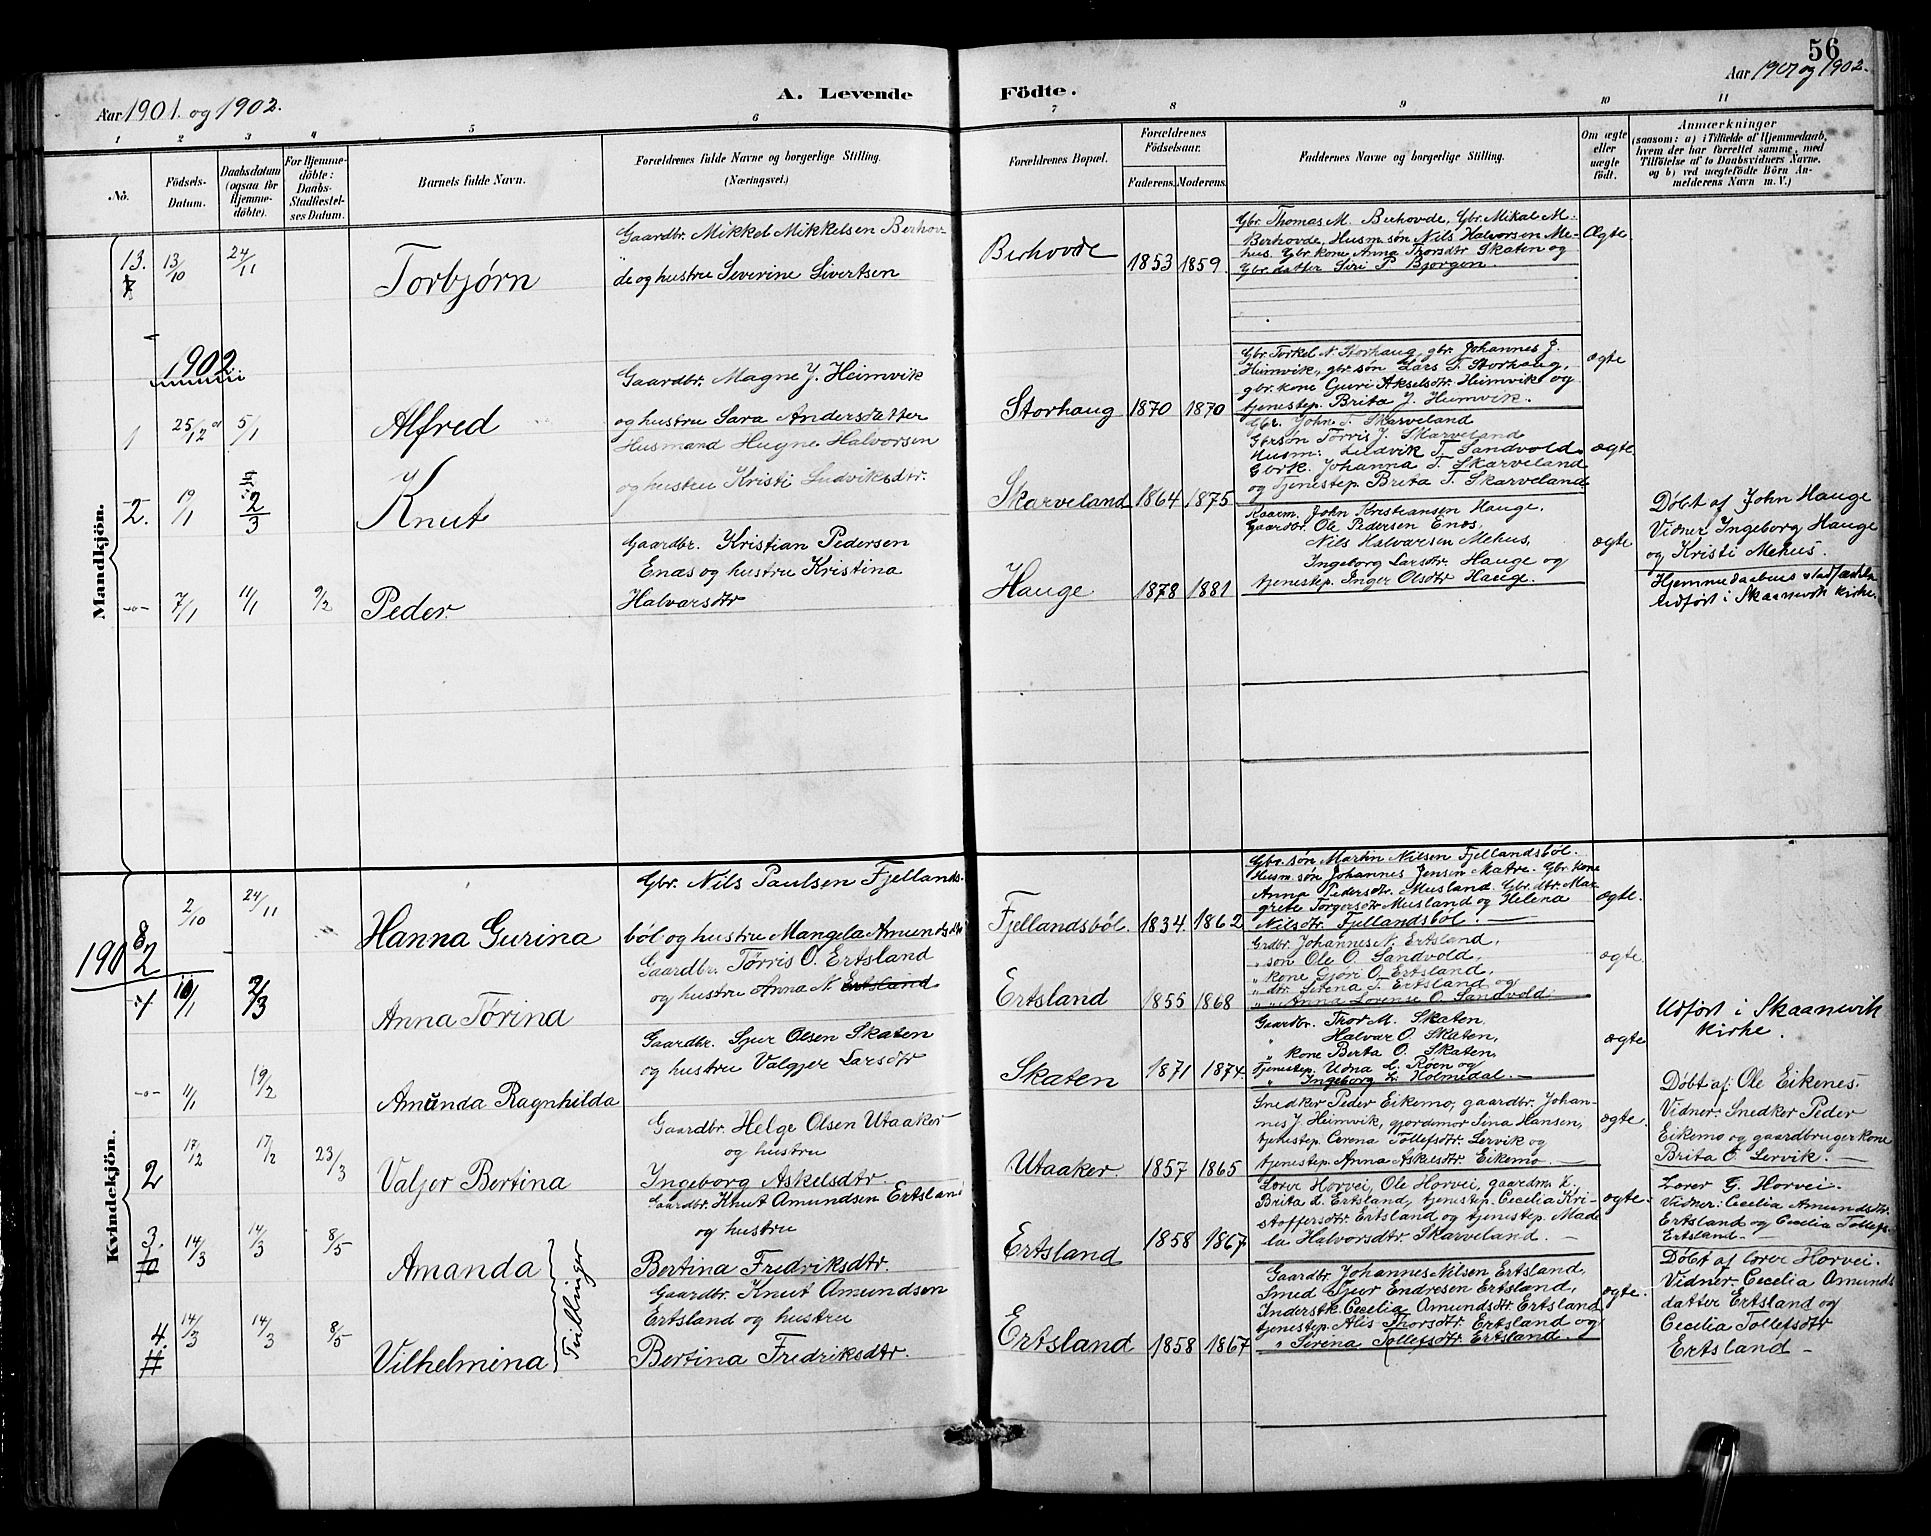 56
Aar 1901. og 1902.
A. Levende Födte.
Aar 1901 og 1902.
1 2 3 4 5 6 7 8 9 10 11
No.
Födsels-
Datum.
Daabsdatum
(ogsaa for
Hjemme-
döbte).
For Hjemme-
döbte:
Daabs-
Stadfæstel-
ses Datum.
Barnets fulde Navn.
Forældrenes fulde Navne og borgerlige Stilling.
(Næringsvei.)
Forældrenes Bopæl.
Forældrenes
Födselsaar.
Faderens. Moderens.
Faddernes Navne og borgerlige Stilling.
Om ægte
eller
uægte
födt.
Anmærkninger
(saasom: a) i Tilfælde af Hjemmedaab,
hvem der har forrettet samme, med
Tilföielse af to Daabsvidners Navne,
og b) ved uægtefödte Börn An-
melderens Navn m. V.)
Mandkjön.
13. 13/10 24/11
Torbjørn
Gaardbr. Mikkel Mikkelsen Berhov-
de og hustru Severine Sivertsen
Berhovde 1853 1859
Gbr. Thomas M. Berhovde, Gbr. Mikal M.
Berhovde, Husm.søn Nils Halvorsen Me-
hus. Gbr.kone Anna Thorsdtr Skaten og
Gbr.datter Siri P. Bjorgen.
Ægte
1902
1 25/12 01 5/1
Alfred
Gaardbr. Magne J. Heimvik
og hustru Sara Andersdatter
Storhaug 1870 1870
Gbr. Torkel N. Storhaug, gbr. Johannes J.
Heimvik, gbr.søn Lars T. Storhaug,
gbr.kone Guri Akselsdtr. Heimvik og
tjenestep. Brita J. Heimvik.
ægte
2. 19/1 2/3
Knut
Husmand Hugne Halvorsen
og hustru Kristi Ludviksdtr.
Skarveland 1864 1875
Gbr. John T. Skarveland
Gbrsøn Tørris J. Skarveland
Husm: Ludvik T. Sandvold.
Gbrk. Johanna T. Skarveland
og Tjenestep Brita T. Skarveland
ægte
-o- 7/1 11/1 9/2
Peder.
Gaardbr. Kristian Pedersen
Enæs og hustru Kristina
Halvarsdtr
Hauge 1878 1881
Kaarm. John Kristiansen Hauge,
Gaardbr. Ole Pedersen Enæs,
Nils Halvarsen Mehus,
Ingeborg Larsdtr. Hauge og
tjenestep. Inger Olsdtr Hauge.
ægte
Døbt af John Hauge
Vidner Ingeborg Hauge
og Kristi Mehus.
Hjemmedaabens stadfæstelse
Udført i Skaanevik kirke.
Kvindekjön.
8 2/10 24/11
Hanna Gurina
Gbr. Nils Paulsen Fjellands-
böl og hustru Mangela Amundsdtr
Fjellandsböl. 1834 1862
Gbr.søn Martin Nilsen Fjellandsböl.
Husm.søn Johannes Jensen Matre. Gbr.kone
Anna Pedersdtr. Musland. Gbr.dtr. Mar-
grete Torgersdtr Musland og Helena
Nilsdtr. Fjellandsböl.
ægte.
1902
1 10/1 2/3
Anna Tørina
Gaardbr. Tørris O. Ertsland
og hustru Anna N. Ertsland
Ertsland 1855 1868
Grdbr. Johannes N. Ertsland,
" søn Ole O. Sandvold,
" kone Gjöri O. Ertsland,
" dtr Serina T. Ertsland og
" " Anna Lorense O. Sandvold.
ægte.
-o- 11/1 19/2
Amunda Ragnhilda
Gaardbr. Sjur Olsen Skaten
og hustru Valgjer Larsdtr
Skaten 1871 1874.
Gaardbr. Thor M. Skaten,
" Halvar O. Skaten,
" kone Berta O. Skaten,
Tjenestep. Udna L. Røen og
" Ingeborg L. Holmedal.
ægte
Udført i Skaanevik
Kirke.
2 17/2 17/2 23/3
Valjer Bertina
Gaardbr. Helge Olsen Utaaker
og hustru
Ingeborg Askelsdtr.
Utaaker. 1857 1865
Snedker Peder Eikemo, gaardbr. Johan-
nes J. Heimvik, gjordmor Sina Hansen,
tjenestep. Cerena Tollefsdtr. Lervik og
tjenestep. Anna Askelsdtr. Eikemo.
ægte.
Døbt af: Ole Eikenes.
Vidner: Snedker Peder
Eikemo og gaardbrugerkone
Brita O. Lervik.
3. 14/3 14/3 8/5
Amanda
Tvillinger
Gaardbr. Knut Amundsen Ertsland
og hustru
Bertina Fredriksdtr.
Ertsland 1858 1867
Lærer Horvei, Ole Horvei, gaardm. L.
Brita L. Ertsland, tjenestep. Cecelia Kri-
stoffersdtr. Ertsland og tjenestep. Made
la Halvorsdtr. Skarveland.
ægte.
Lærer G. Horvei.
Vidner: Cecelia Amundsdtr.
Ertsland og Cecelia Tollefs-
Ertsland.
4. 14/3 14/3 8/5
Vilhelmina
Gaardbr. Knut Amundsen
Ertsland og hustru
Bertina Fredriksdtr.
Ertsland 1858 1867
Gaardbr. Johannes Nilsen Ertsland,
Smed Sjur Endresen Ertsland,
Inderstk. Cecelia Amundsdtr Ertsland
tjenestep. Alis Thorsdtr. Ertsland og
" Serina Tollefsdtr. Ertsland.
ægte.
Døbt af lærer Horvei.
Vidner: Cecelia Amunds
datter Ertsland og
Cecelia Tollefsdtr
Ertsland